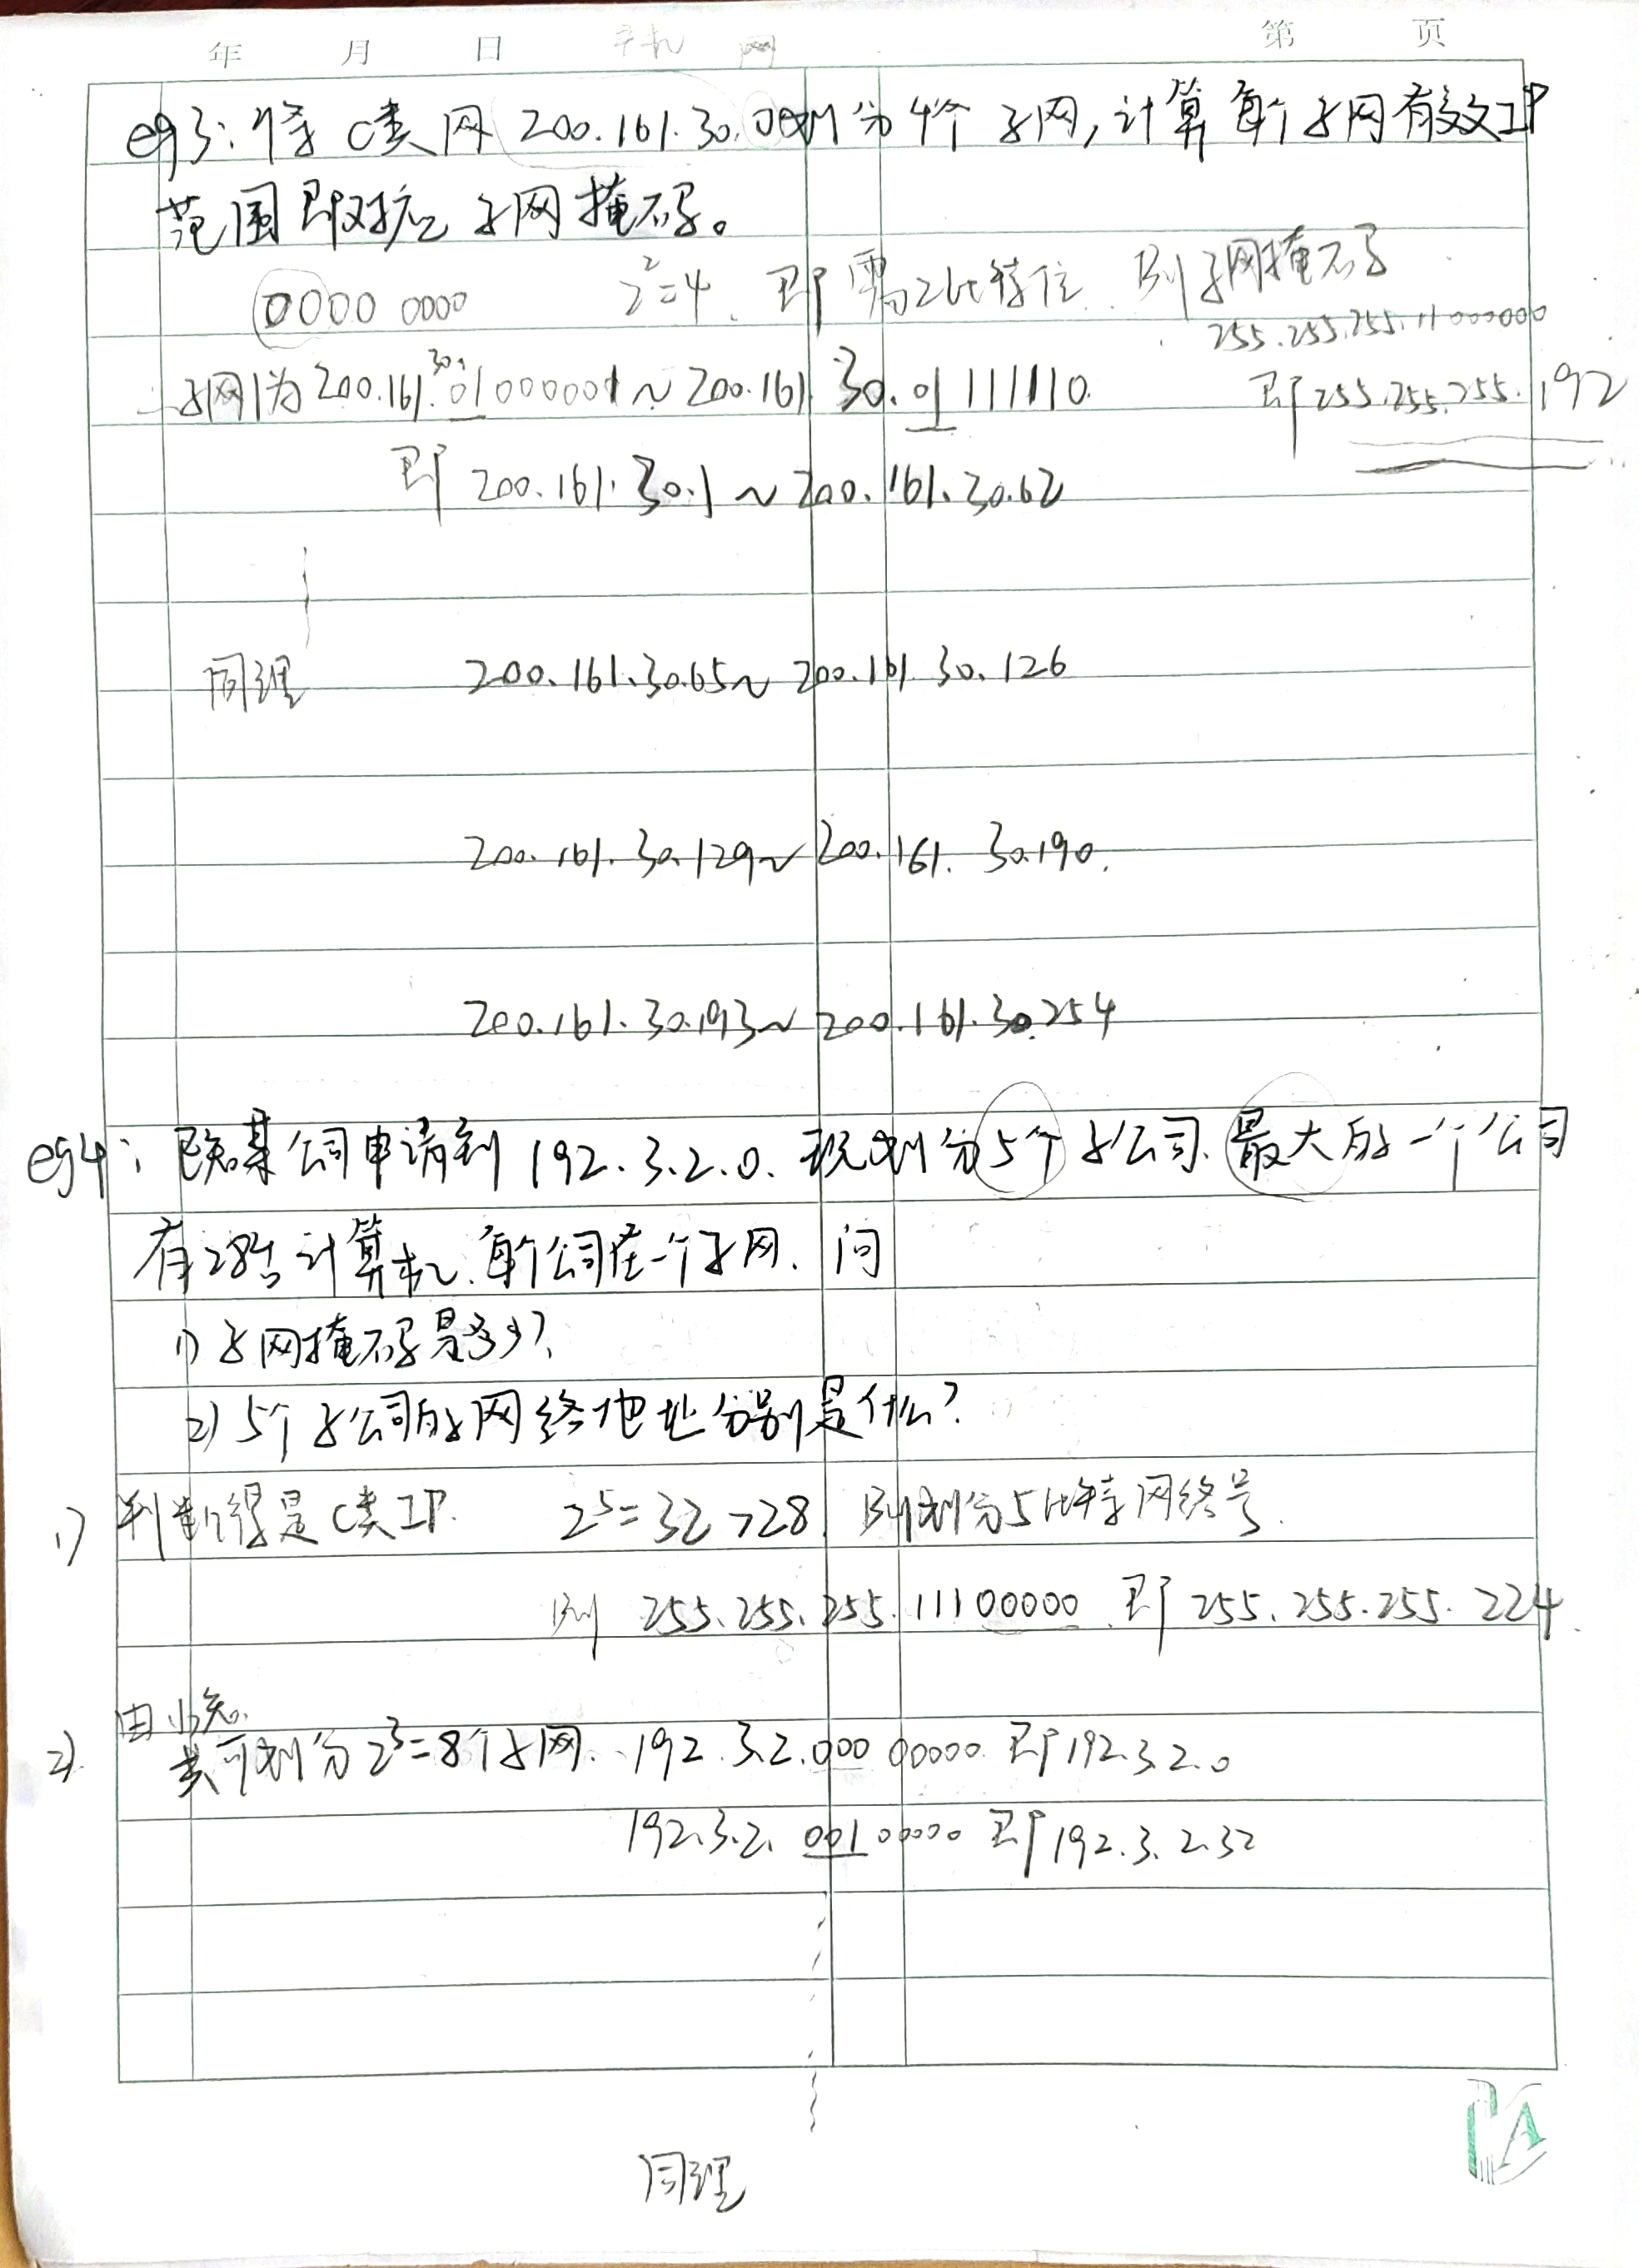 年 月 日 主机 网 第 页
eg3: 将C类网 200.161.30.0划分4个子网,计算每个子网有效IP
范围即对应子网掩码。
0000 0000 2²=4. 即需2比特位. 则子网掩码
255.255.255.11000000
子网1为200.161.30.01000001~200.161.30.01111110. 即255.255.255.192
即 200.161.30.1~200.161.30.62
同理 200.161.30.65~200.161.30.126
200.161.30.129~200.161.30.190.
200.161.30.193~200.161.30.254
eg4: 已知某公司申请到192.3.2.0.现划分5个子公司.最大的一个公司
有28台计算机.每个公司在一个子网.问
1) 子网掩码是多少?
2) 5个子公司的网络地址分别是什么?
1) 判断得是C类IP. 2⁵=32>28, 则划分5比特网络号.
则 255.255.255.11100000. 即 255.255.255.224.
由1)知.
2). 共可划分2³=8个子网. 192.3.2.000 00000. 即192.3.2.0
192.3.2.00100000 即192.3.2.32
同理